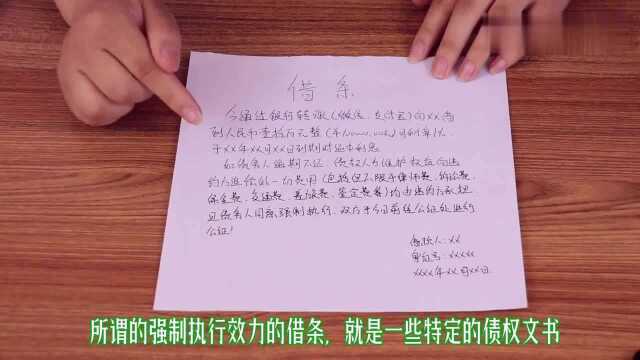 借条
今通过银行转账(微信、支付宝)向XX借
到人民币壹拾万元整(¥100000)月利率1%,
于XX年XX月XX日到期时还本利息
如借务人逾期不还,债权人为维护权益向违
约方追偿的一切费用(包括但不限于律师费、诉讼费、
保全费、交通费、差旅费、鉴定费等)均由违约方承担
且债务人同意强制执行,双方于今日前往公证处进行
公证!
借款人:XX
身份证号:XXXXX
XXXX年XX月XX日
所谓的强制执行效力的借条,就是一些特定的债权文书